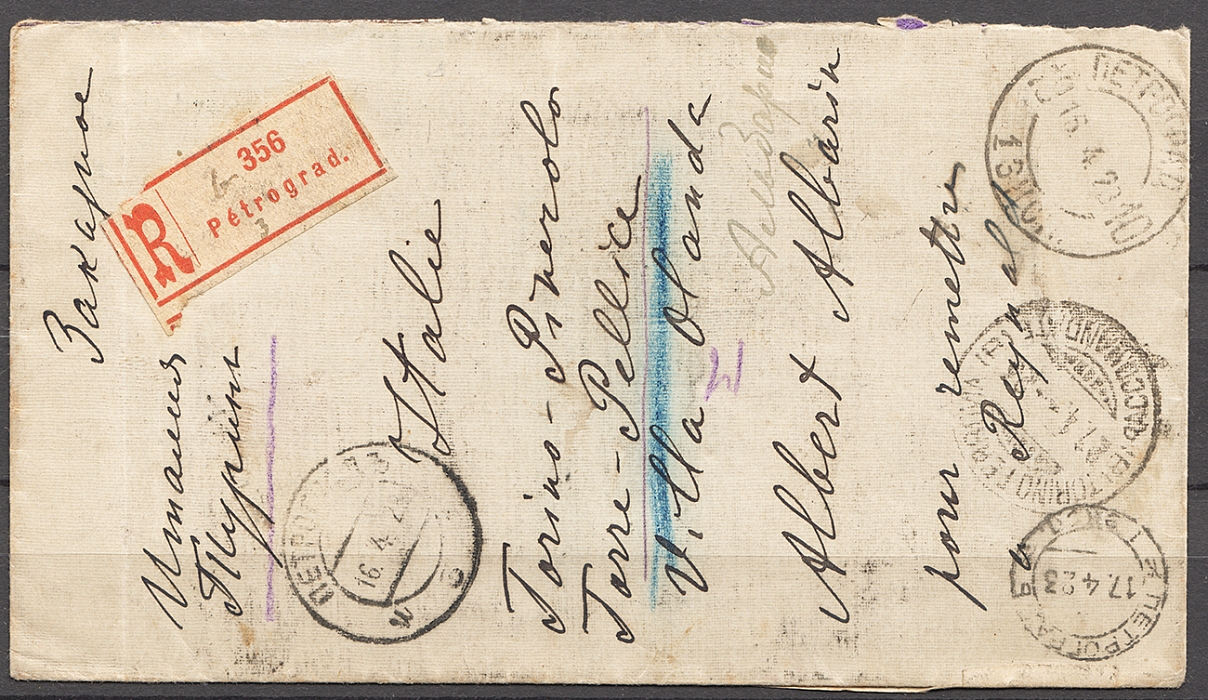 Заказное
R
356
Pétrograd.
3
Италия
Турин
Italie
Torino-Pinerolo
Torre-Pellice
Villa Olanda
Альбарин
Albert Albarin
pour remettre
Reynald
ПЕТРОГРАД
16.4.23
ПЕТРОГРАД
16 4 23
1
13
ПЕТРОГРАД
17.4.23
TORINO FERROVIA
RACCOMANDATE